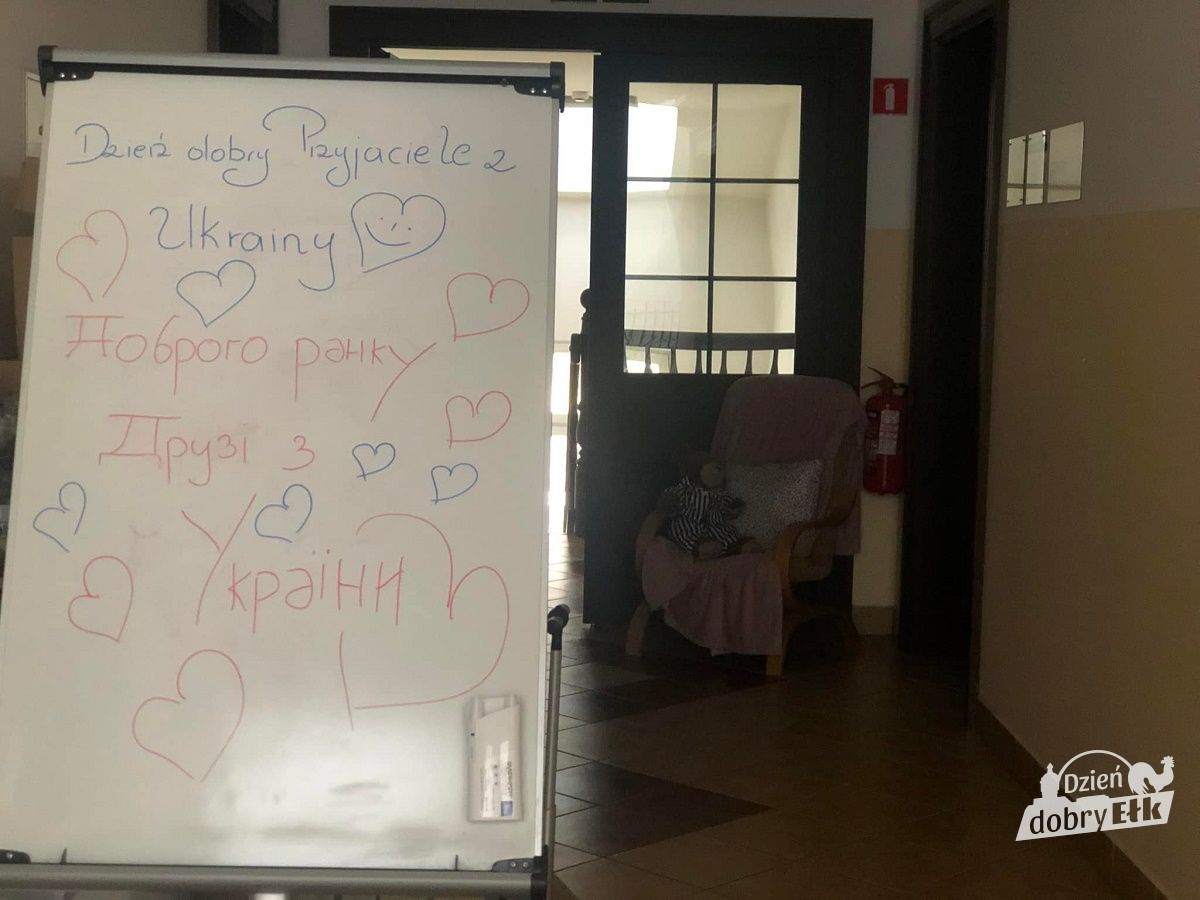 Dzień dobry Przyjaciele z
Ukrainy
Доброго ранку
Друзі з
України
Dzień
dobry Ełk